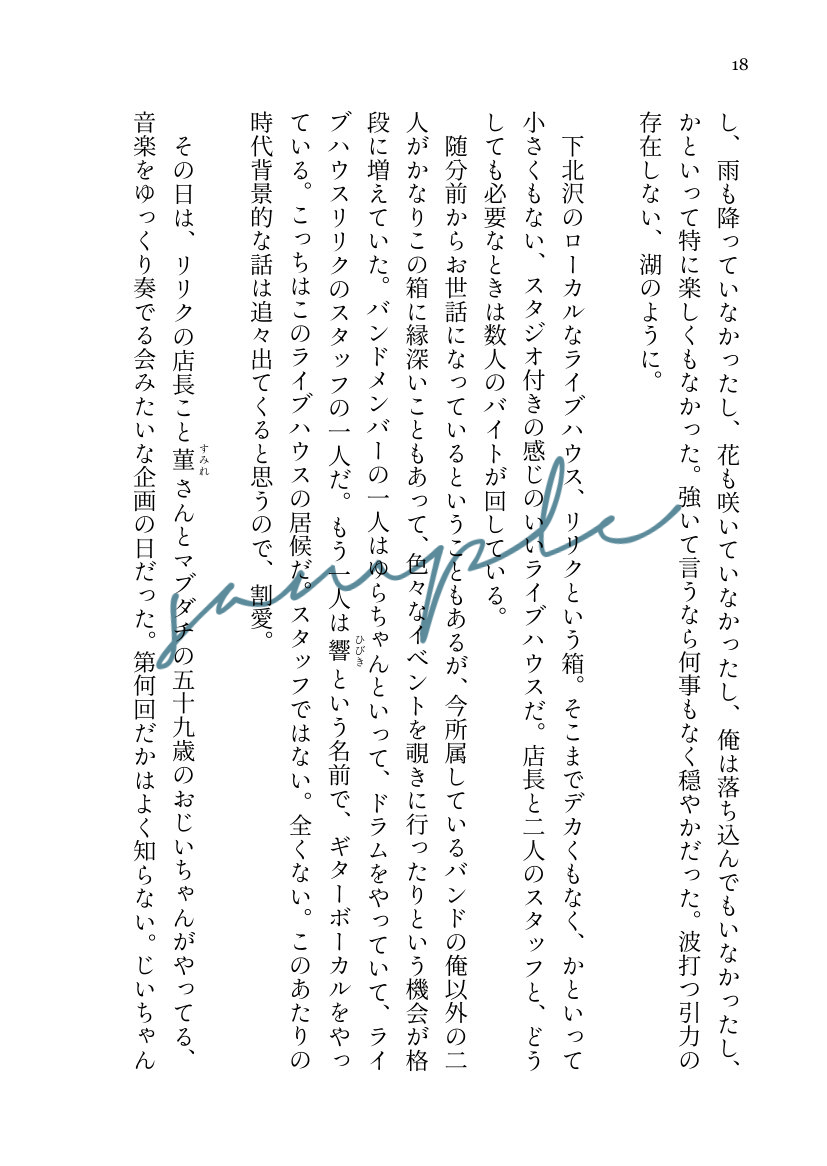 18
し、雨も降っていなかったし、花も咲いていなかったし、俺は落ち込んでもいなかったし、
かといって特に楽しくもなかった。強いて言うなら何事もなく穏やかだった。波打つ引力の
存在しない、湖のように。
下北沢のローカルなライブハウス、リリクという箱。そこまでデカくもなく、かといって
小さくもない、スタジオ付きの感じのいいライブハウスだ。店長と二人のスタッフと、どう
しても必要なときは数人のバイトが回している。
随分前からお世話になっているということもあるが、今所属しているバンドの俺以外の二
人がかなりこの箱に縁深いこともあって、色々なイベントを覗きに行ったりという機会が格
段に増えていた。バンドメンバーの一人はゆらちゃんといって、ドラムをやっていて、ライ
ブハウスリリクのスタッフの一人だ。もう一人は響という名前で、ギターボーカルをやっ
ひびき
ている。こっちはこのライブハウスの居候だ。スタッフではない。全くない。このあたりの
時代背景的な話は追々出てくると思うので、割愛。
その日は、リリクの店長こと菫さんとマブダチの五十九歳のおじいちゃんがやってる、
すみれ
音楽をゆっくり奏でる会みたいな企画の日だった。第何回だかはよく知らない。じいちゃん
sample